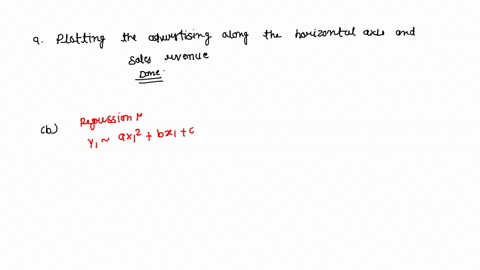 a. Plotting the advertising along the horizontal axis and
sales revenue
Done.
(b) Regression μ
y₁ ~ ax₁² + bx₁ + c